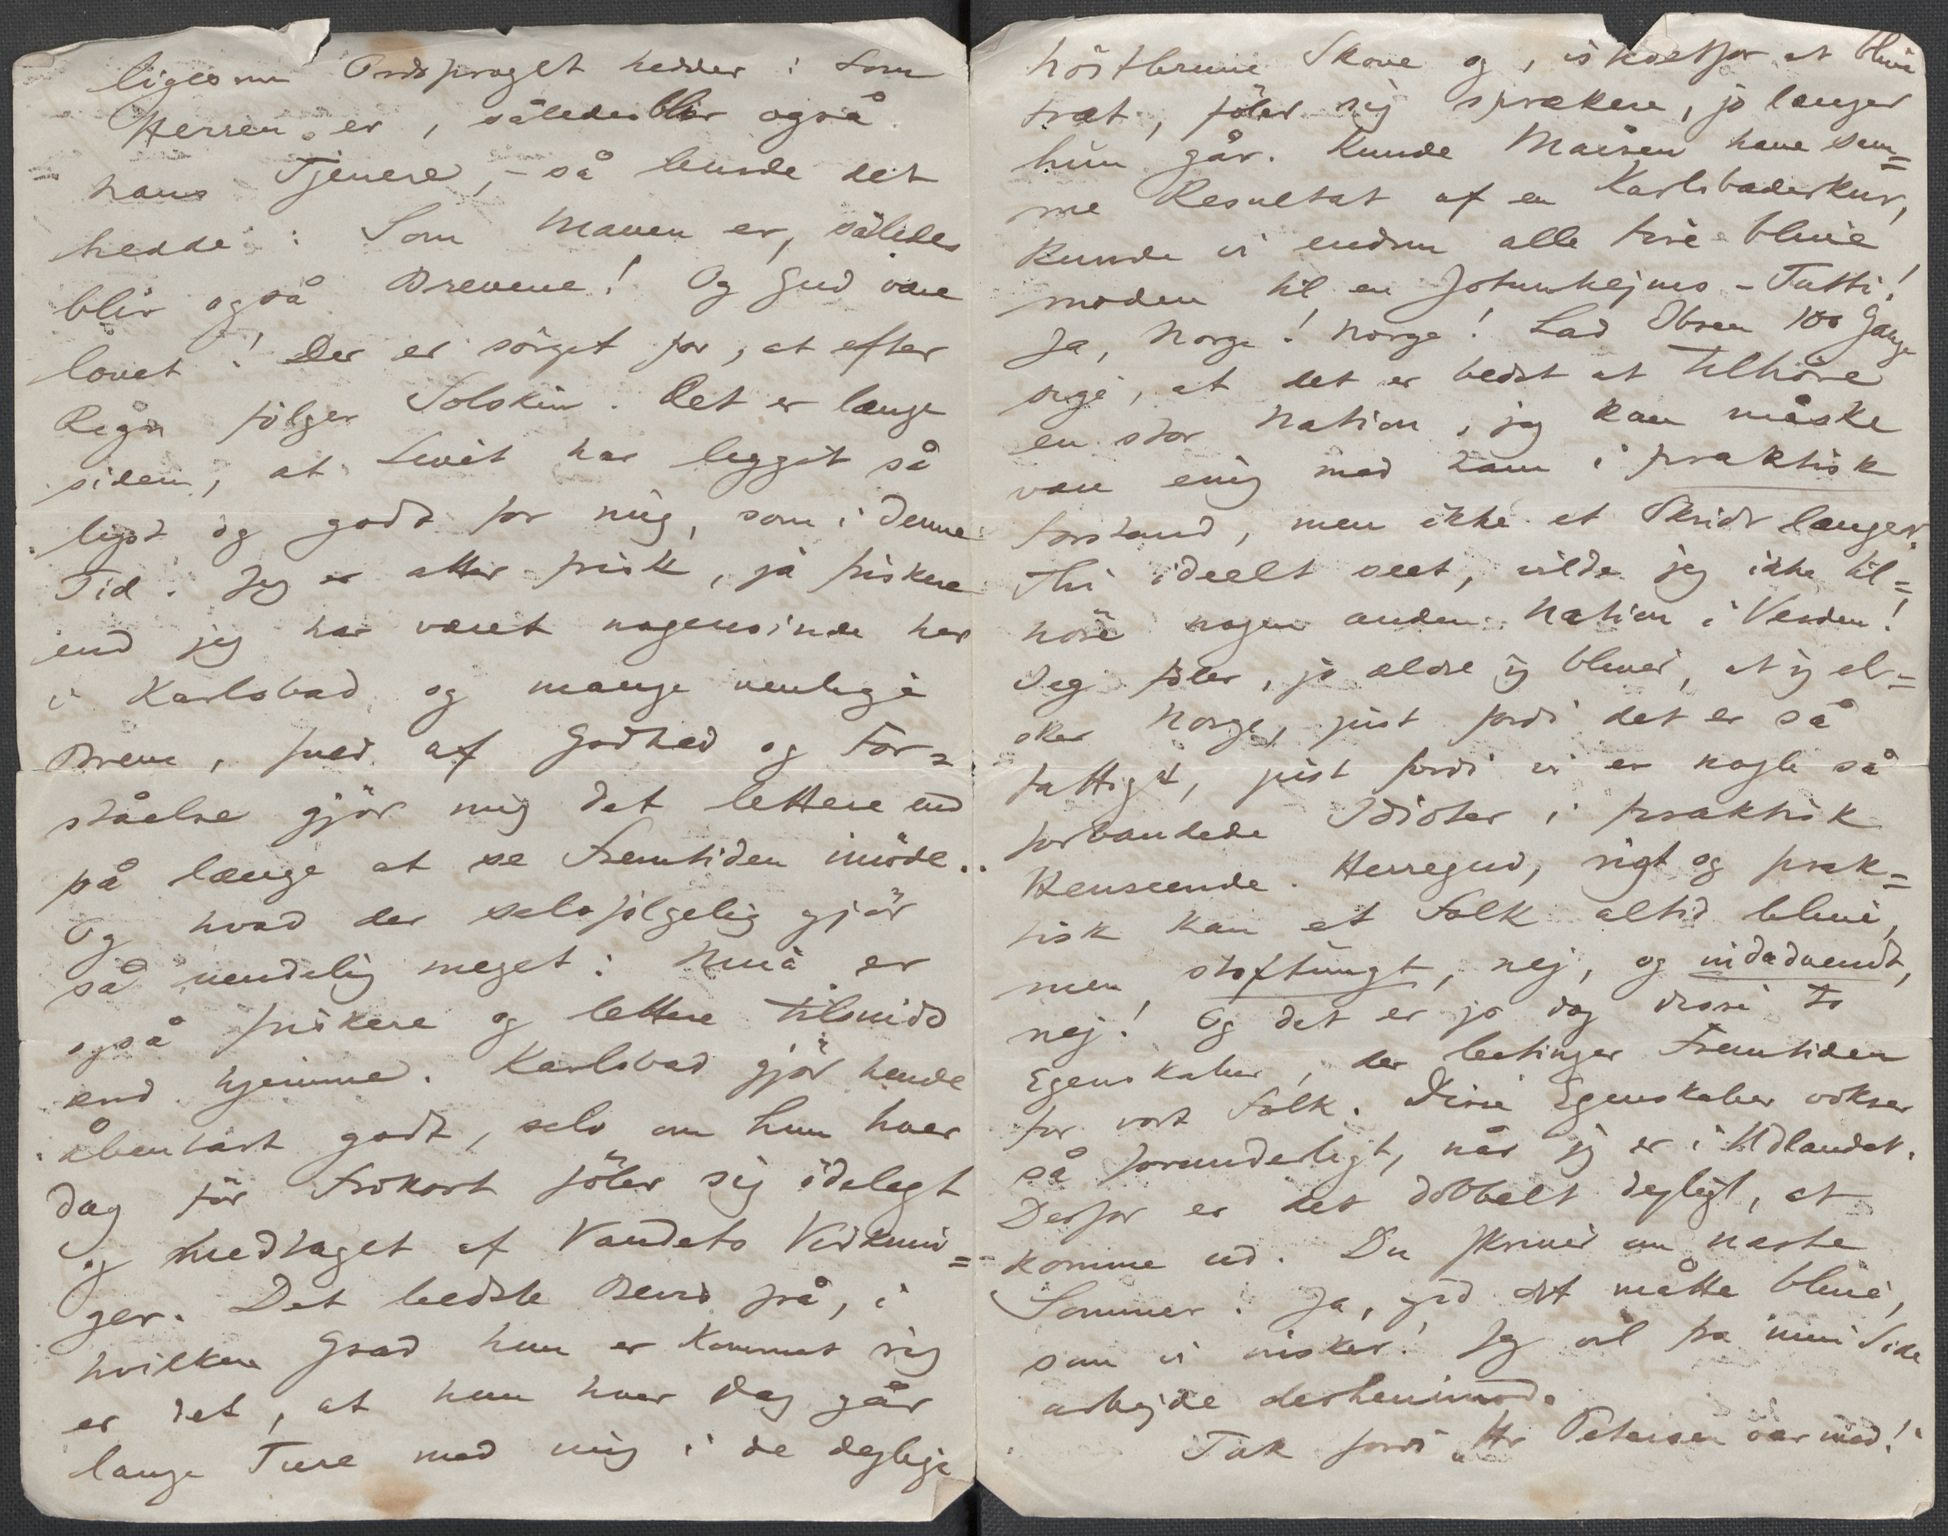 ligesom Ordsproget hedder: Som
Herren er, således blir også
hans Tjenere, – så burde det
hedde: Som Maven er, således
blir også Brevene! Og Gud være
lovet! Der er sörget for, at efter
Regn fölger Solskin. Det er længe
siden, at Livet har ligget så
lyst og godt for mig, som i denne
Tid. Jeg er atter frisk, ja friskere
end jeg har været nogensinde her
i Karlsbad og mange venlige
Breve, fuld af Godhed og For=
ståelse gjör mig det lettere end
på længe at se Fremtiden imöde.
Og hvad der selvfölgelig gjör
så uendelig meget: Nina er
også friskere og lettere tilsinds
end hjemme. Karlsbad gjör hende
åbenbart godt, selv om hun hver
Dag för Frokost föler sig ödelagt
og medtaget af Vandets Virknin=
ger. Det bedste Bevis på, i
hvilken Grad hun er kommet sig
er det, at hun hver Dag går
lange Ture med mig i de dejlige
höstbrune Skove og, istedetfor at blive
træt, föler sig sprækere, jo længer
hun går. Kunde Maisen have sam=
me Resultat af en Karlsbaderkur,
kunde vi endnu alle fire blive
moden til en Jotunhejms-Tutti!
Ja, Norge! Norge! Lad Ibsen 100 Gange
sige, at det er bedst at tilhöre
en stor Nation, jeg kan måske
være enig med ham i praktisk
Forstand, men ikke et Skridt længer.
Thi ideelt seet, vilde jeg ikke til=
höre nogen anden Nation i Verden!
Jeg föler, jo ældre jeg bliver, at jeg el=
sker Norge, just fordi det er så
fattigt, just fordi vi er nogle så
forbandede Idioter i praktisk
Henseende. Herregud, rigt og prak=
tisk kan et Folk altid blive,
men stoftungt, nej, og indadvendt,
nej! Og det er jo dog disse to
Egenskaber, der betinger Fremtiden
for vort Folk. Disse Egenskaber vokser
så forunderligt, når jeg er i Udlandet.
Derfor er det dobbelt dejligt, at
komme ud. Du skriver om næste
Sommer. Ja, gid det måtte blive,
som vi önsker! Jeg vil fra min Side
arbejde derhenimod.
Tak fordi „Hr Petersen var med!"